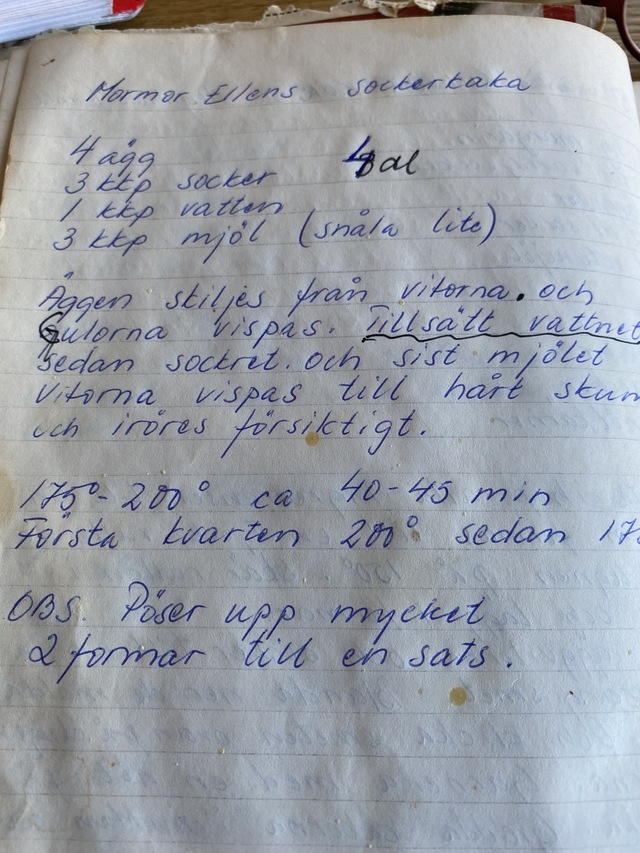 Mormor Ellens sockerkaka
4 ägg
3 kkp socker
1 kkp vatten
3 kkp mjöl (snåla lite)
Äggen skiljes från vitorna. och
Gulorna vispas. Tillsätt vattnet
sedan sockret. och sist mjölet
Vitorna vispas till hårt skum
och iröres försiktigt.
175°-200° ca 40-45 min
Första kvarten 200° sedan
OBS. Pöser upp mycket
2 formar till en sats.